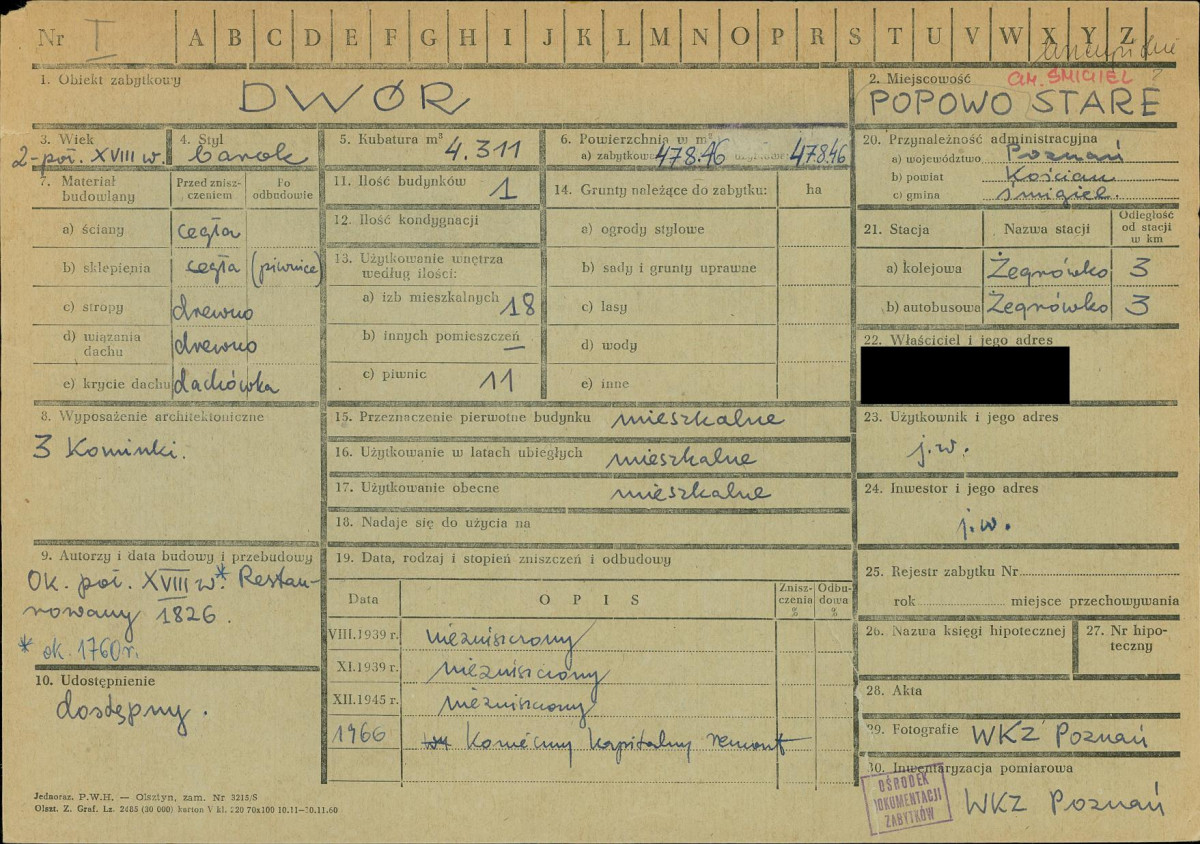 Nr I A B C D E F G H I J K L M N O P R S T U V W X Y Z
1. Obiekt zabytkowy
DWÓR
2. Miejscowość
GM. ŚMIGIEL ?
POPOWO STARE
3. Wiek
2-poł. XVIII w.
4. Styl
barok
5. Kubatura m³
4.311
6. Powierzchnia w m²
a) zabytkowa 478.46 478.46
7. Materiał budowlany
Przed zniszczeniem
Po odbudowie
a) ściany cegła
b) sklepienia cegła (piwnice)
c) stropy drewno
d) wiązania dachu drewno
e) krycie dachu dachówka
8. Wyposażenie architektoniczne
3 Kominki.
9. Autorzy i data budowy i przebudowy
Ok. poł. XVIII w.* Restau-
rowany 1826.
* ok. 1760 r.
10. Udostępnienie
dostępny.
11. Ilość budynków 1
12. Ilość kondygnacji
13. Użytkowanie wnętrza
według ilości:
a) izb mieszkalnych 18
b) innych pomieszczeń –
c) piwnic 11
14. Grunty należące do zabytku: ha
a) ogrody stylowe
b) sady i grunty uprawne
c) lasy
d) wody
e) inne
15. Przeznaczenie pierwotne budynku mieszkalne
16. Użytkowanie w latach ubiegłych mieszkalne
17. Użytkowanie obecne mieszkalne
18. Nadaje się do użycia na
19. Data, rodzaj i stopień zniszczeń i odbudowy
Data OPIS Zniszczenia % Odbudowa %
VIII.1939 r. niezniszczony
XI.1939 r. niezniszczony
XII.1945 r. niezniszczony
1966 Konieczny kapitalny remont
20. Przynależność administracyjna
a) województwo Poznań
b) powiat Kościan
c) gmina Śmigiel.
21. Stacja Nazwa stacji Odległość od stacji w km
a) kolejowa Żegrówko 3
b) autobusowa Żegrówko 3
22. Właściciel i jego adres
23. Użytkownik i jego adres
j.w.
24. Inwestor i jego adres
j.w.
25. Rejestr zabytku Nr
rok miejsce przechowywania
26. Nazwa księgi hipotecznej
27. Nr hipoteczny
28. Akta
29. Fotografie WKZ Poznań
30. Inwentaryzacja pomiarowa
WKZ Poznań
OŚRODEK
DOKUMENTACJI
ZABYTKÓW
Jednoraz. P.W.H. — Olsztyn, zam. Nr 3215/S
Olszt. Z. Graf. Lz. 2485 (30 000) karton V kl. 220 70x100 10.11—30.11.60